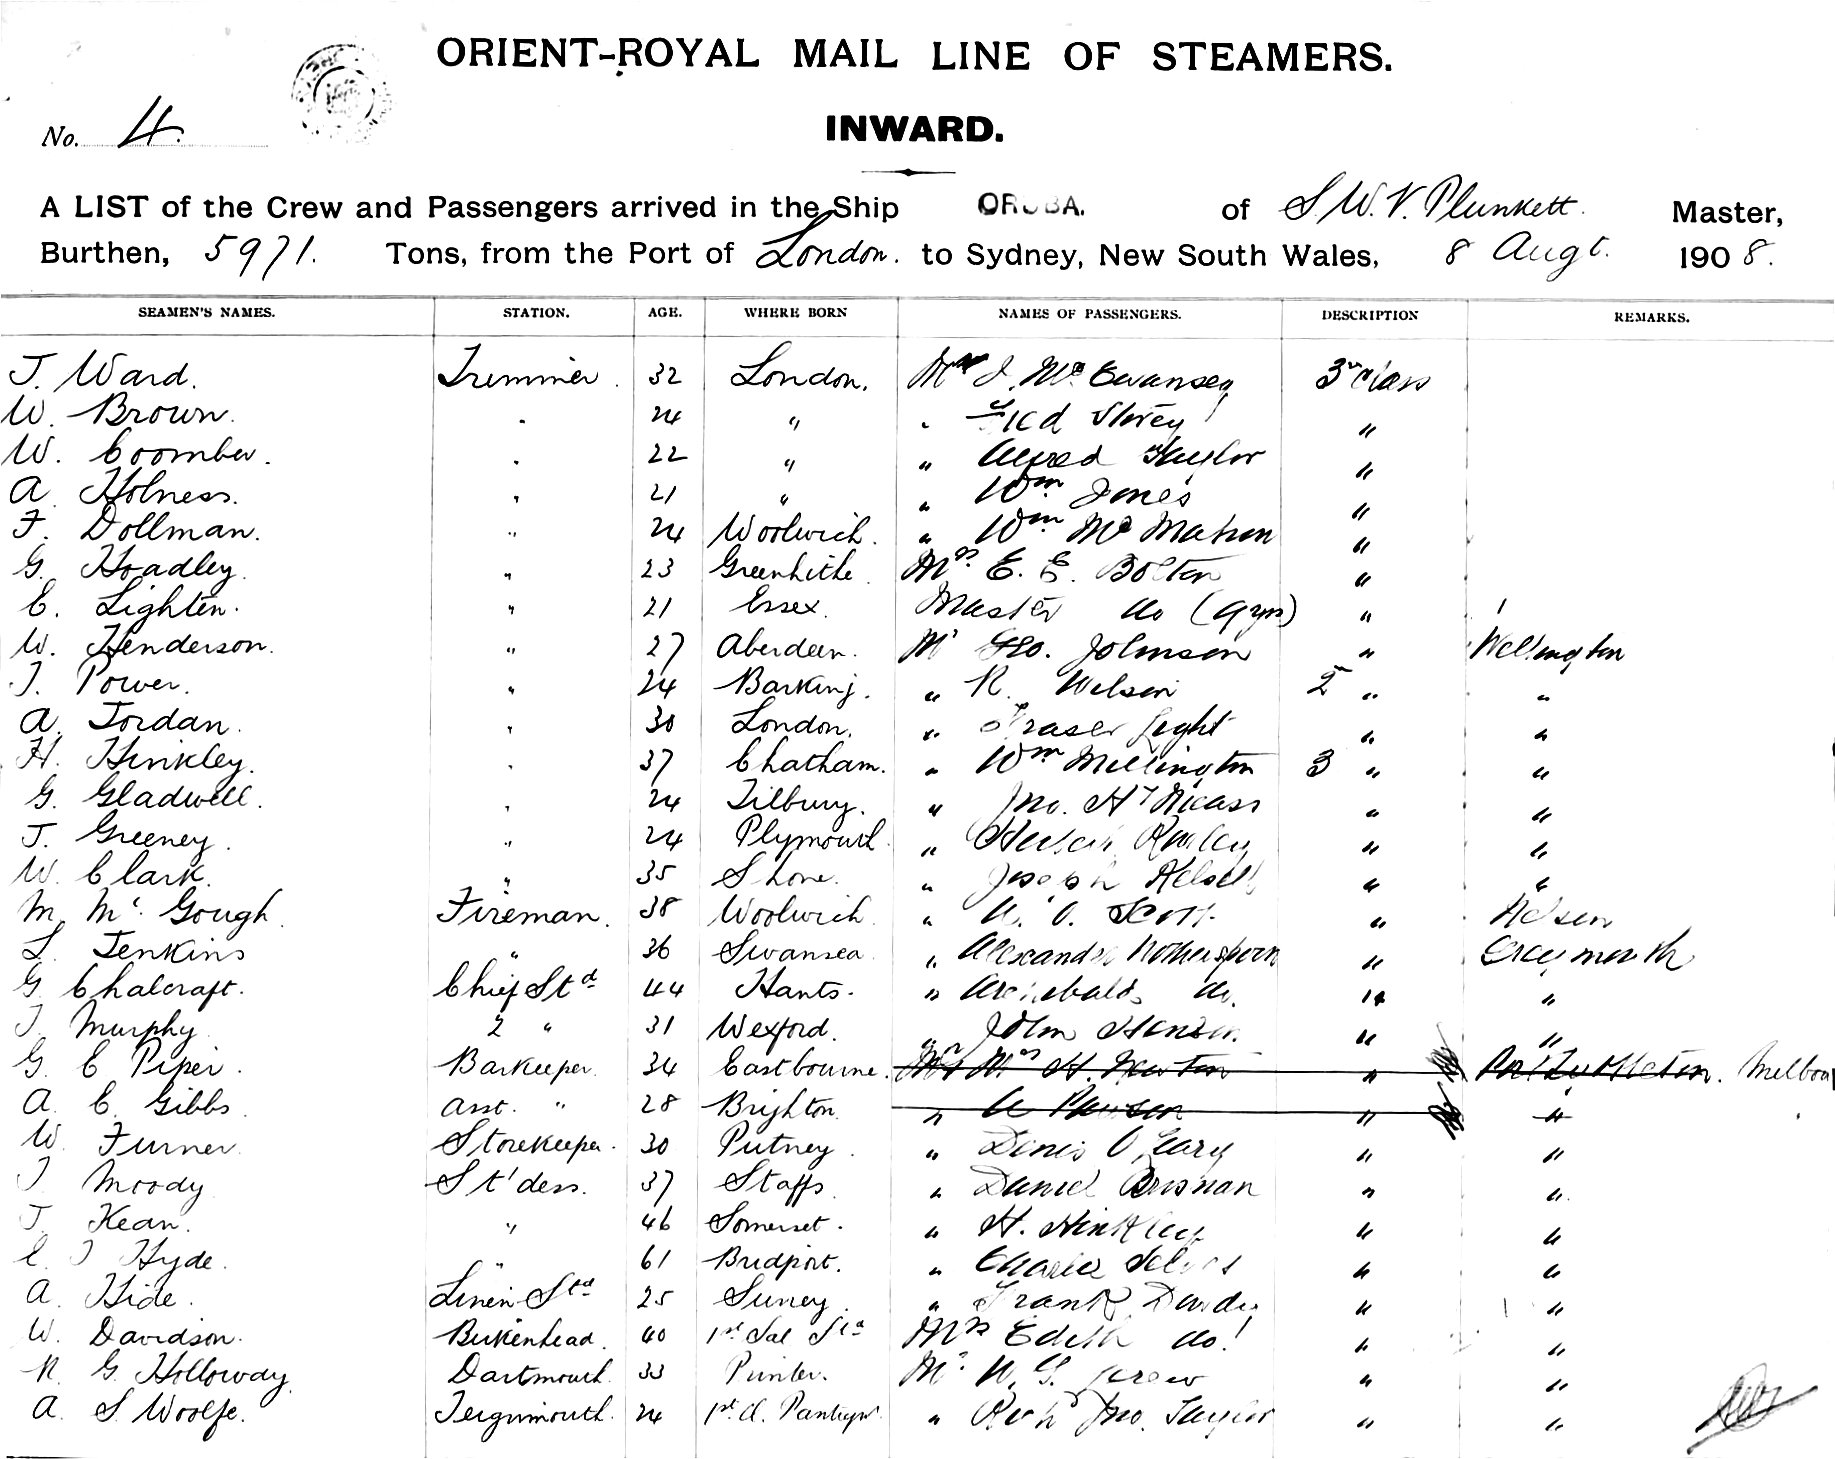 ORIENT-ROYAL MAIL LINE OF STEAMERS.
No. 4.
INWARD.
A LIST of the Crew and Passengers arrived in the Ship ORUBA. of S. W. V. Plunkett. Master,
Burthen, 5971. Tons, from the Port of London. to Sydney, New South Wales, 8 Augt. 1908.
SEAMEN'S NAMES. STATION. AGE. WHERE BORN NAMES OF PASSENGERS. DESCRIPTION REMARKS.
J. Ward. Trimmer. 32 London. J. Mc 3rd Class
W. Brown. . 24 " "
W. Coomber. . 22 " " Alfred Taylor "
A. Holness. " 21 " " Wm Jones "
F. Dollman. " 24 Woolwich. " Wm Mc Mahon "
G. Hoadley. " 23 Greenhithe. Mrs. E. E. Bolten "
C. Lighten. " 21 Essex. Master do (9 yrs) "
W. Henderson. " 27 Aberdeen. Mr Geo. Johnson " Wellington
J. Power. " 24 Barking. " R. Wilson 2 " "
A. Jordan. " 30 London. " Fraser Light " "
H. Hinkley. " 37 Chatham. " Wm Millington 3 " "
G. Gladwell. " 24 Tilbury. " Jno. Hy " "
J. Greeney. " 24 Plymouth. " " "
W. Clark. " 35 " Joseph " "
M. Mc. Gough. Fireman. 38 Woolwich. " Scott " Nelson
L. Jenkins " 36 Swansea. " Alexander Wotherspoon " Greymouth
G. Chalcraft. Chief Std 44 Hants. " Archibald do. " "
J. Murphy. 2 " 31 Wexford. " John " "
G. C Piper. Barkeeper. 34 Eastbourne. H. Newton " Melbou
A. C. Gibbs. Asst. " 28 Brighton. " " "
W. Turner. Storekeeper. 30 Putney. " Denis O'Leary " "
J. Moody St'dess. 37 Staffs. " Daniel Brosnan " "
J. Kean. " 46 Somerset. " H. Hinkley " "
C. J Hyde. " 61 Bridport. " Charles " "
A. Hide. Linen Std 25 Surrey. " Frank " "
W. Davidson. Birkenhead. 40 1st Sal Std Mrs Edith do. " "
R. G. Holloway. Dartmouth. 33 Printer. Mr W. G. " "
A. S. Woolfe. Teignmouth. 24 1st Cl. " Richd Jno. Taylor " "